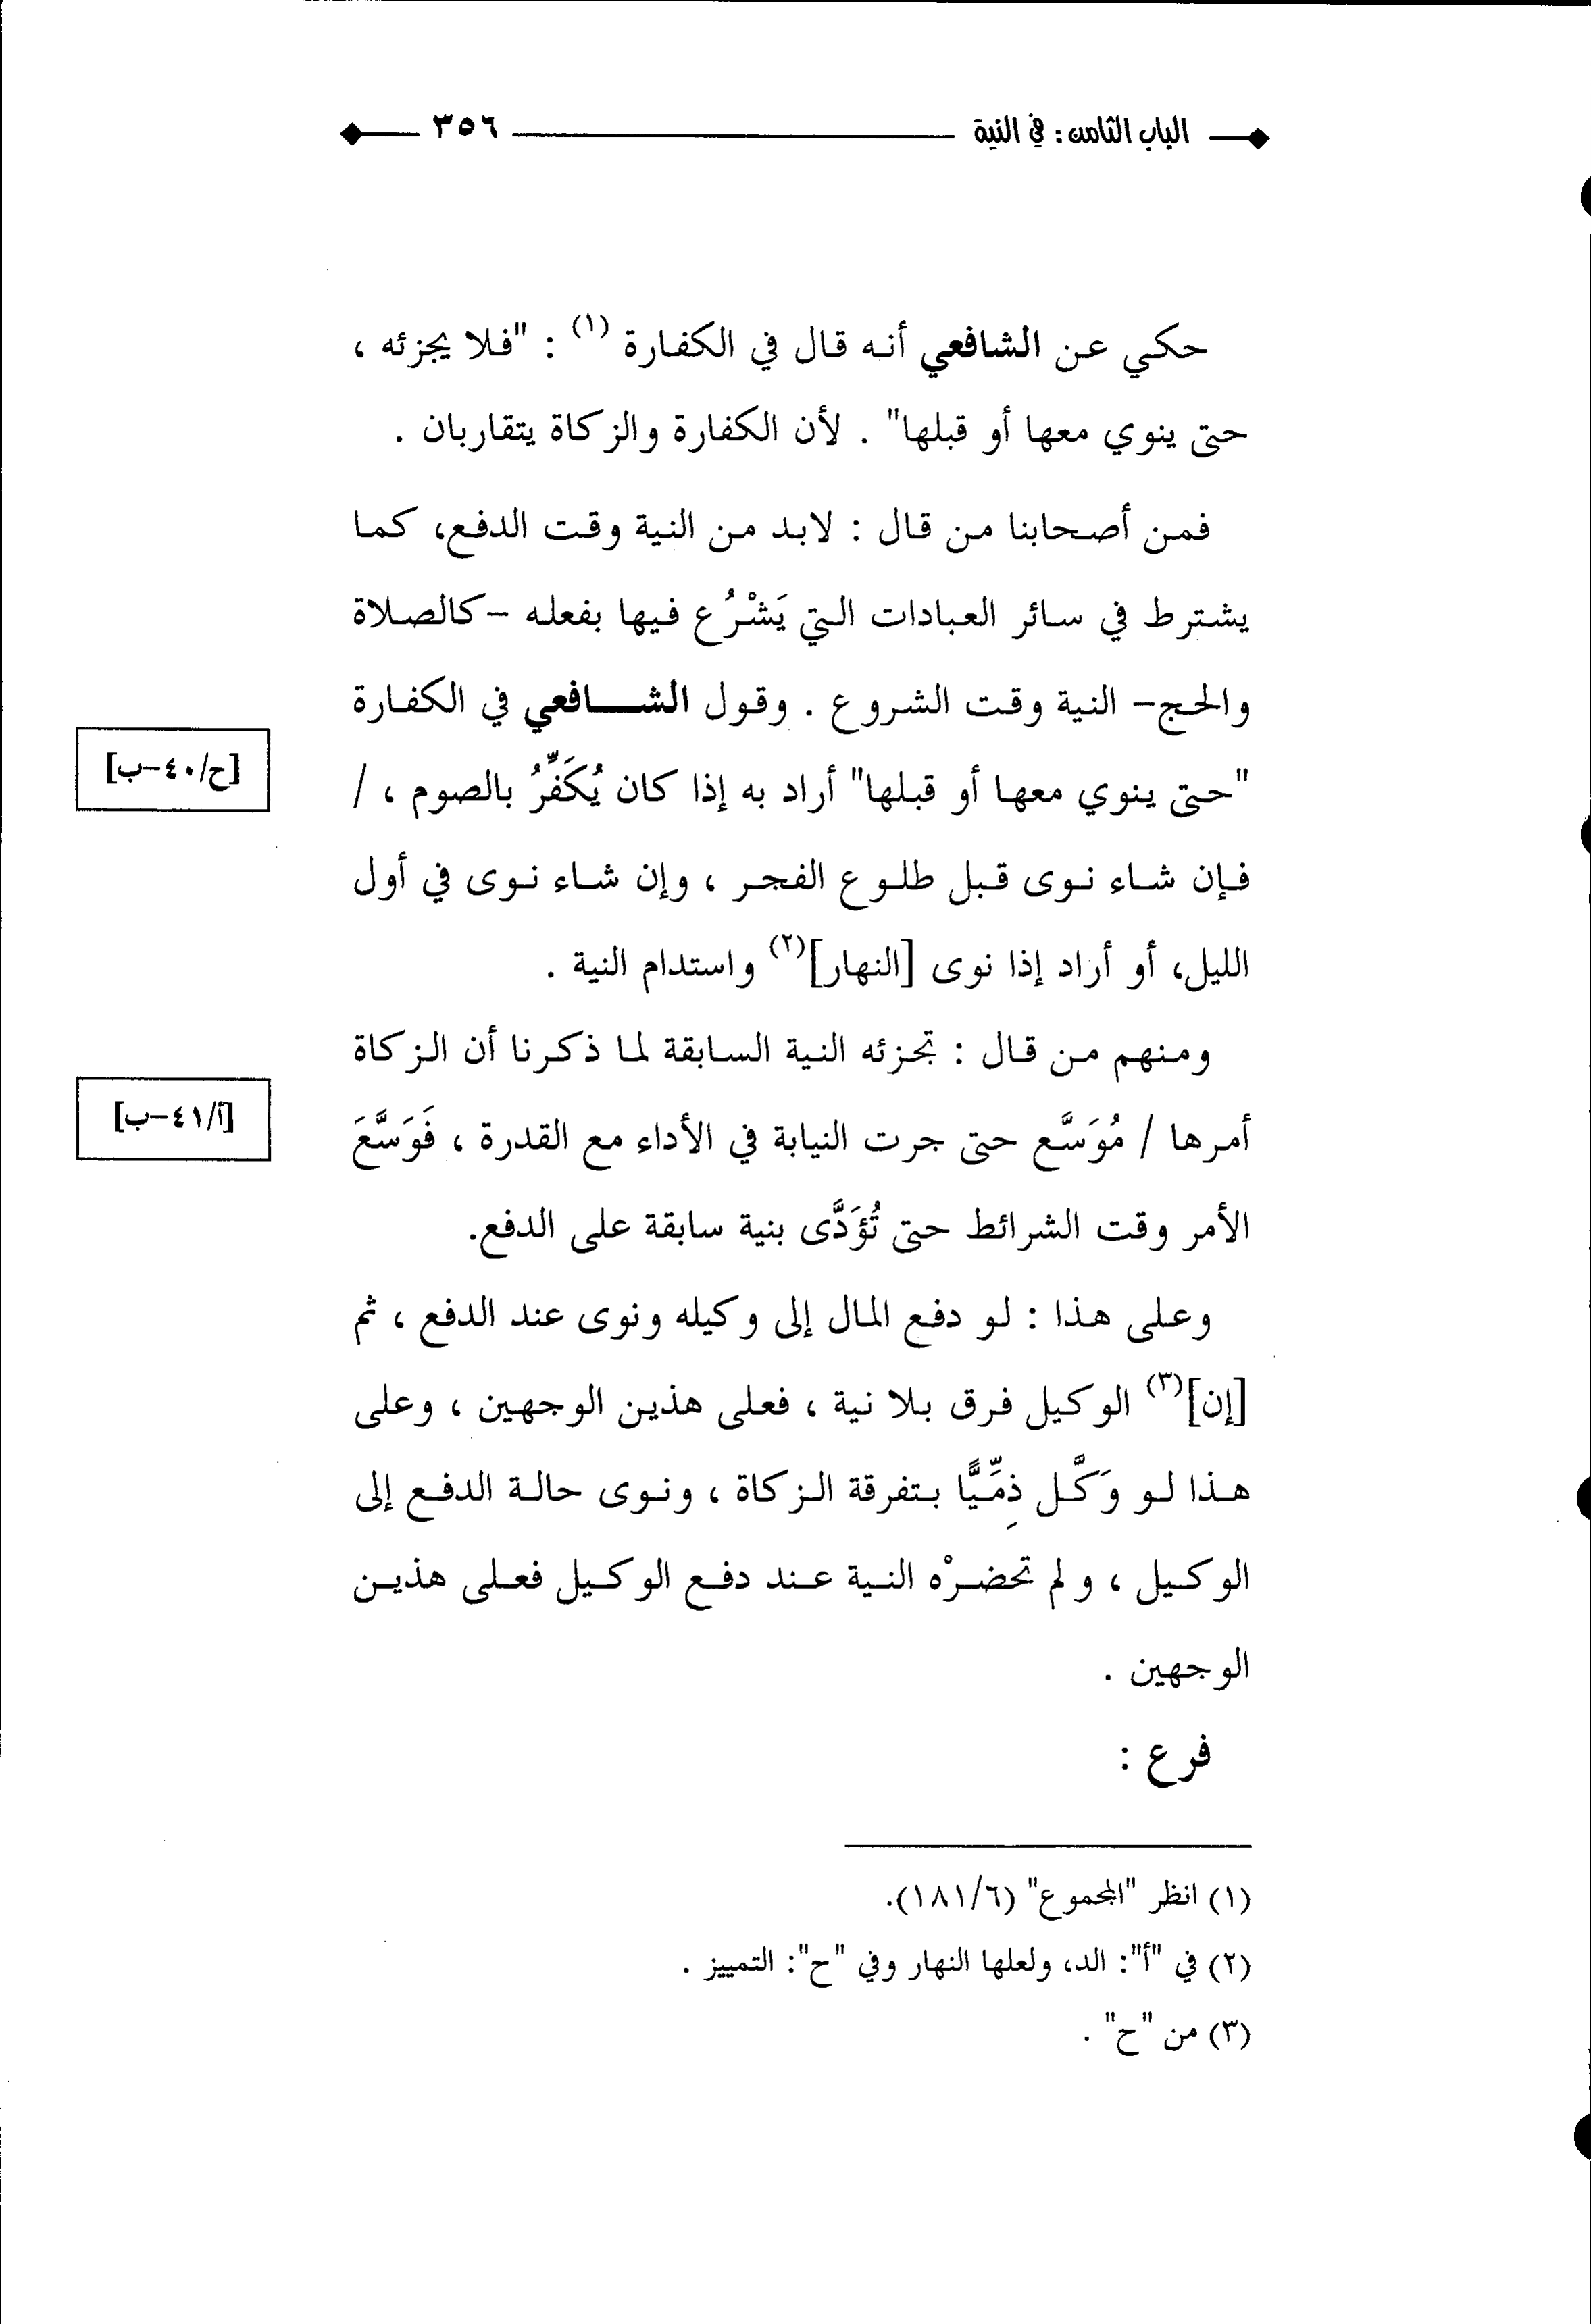 الباب الثامن : في النية ٣٥٦
حكي عن الشافعي أنه قال في الكفارة (١) : "فلا يجزئه ،
حتى ينوي معها أو قبلها" . لأن الكفارة والزكاة يتقاربان .
فمن أصحابنا من قال : لابد من النية وقت الدفع، كما
يشترط في سائر العبادات التي يَشْرُع فيها بفعله -كالصلاة
والحج- النية وقت الشروع . وقول الشافعي في الكفارة
"حتى ينوي معها أو قبلها" أراد به إذا كان يُكَفِّرُ بالصوم ، /
[ح/٤٠-ب]
فإن شاء نوى قبل طلوع الفجر ، وإن شاء نوى في أول
الليل، أو أراد إذا نوى [النهار](٢) واستدام النية .
ومنهم من قال : تجزئه النية السابقة لما ذكرنا أن الزكاة
أمرها / مُوَسَّع حتى جرت النيابة في الأداء مع القدرة ، فَوَسَّعَ
[أ/٤١-ب]
الأمر وقت الشرائط حتى تُؤَدَّى بنية سابقة على الدفع.
وعلى هذا : لو دفع المال إلى وكيله ونوى عند الدفع ، ثم
[إن](٣) الوكيل فرق بلا نية ، فعلى هذين الوجهين ، وعلى
هذا لو وَكَّل ذِمِّيًّا بتفرقة الزكاة ، ونوى حالة الدفع إلى
الوكيل ، ولم تحضرْه النية عند دفع الوكيل فعلى هذين
الوجهين .
فرع :
(١) انظر "المجموع" (١٨١/٦).
(٢) في "أ": الد، ولعلها النهار وفي "ح": التمييز .
(٣) من "ح" .